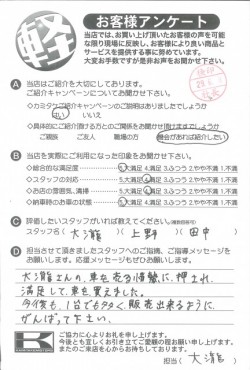 軽
お客様アンケート
当店では、お買い上げ頂いたお客様の声を可能
な限り現場に反映し、お客様により良い商品と
サービスを提供する事に努めています。
大変お手数ですが是非お声をお聞かせ下さい。
A 当店はご紹介を大切にしております。
ご紹介キャンペーンについてお聞かせ下さい。
はい いいえ
ご親族 ご友人 職場の方 機会があれば紹介したい
B 当店を実際にご利用になった印象をお聞かせ下さい。
◇総合的な満足度 5.大満足 4.満足 3.ふつう 2.やや不満 1.不満
◇スタッフの対応 5.大満足 4.満足 3.ふつう 2.やや不満 1.不満
◇お店の雰囲気、清掃 5.大満足 4.満足 3.ふつう 2.やや不満 1.不満
◇納車時のお車の状態 5.大満足 4.満足 3.ふつう 2.やや不満 1.不満
C 評価したいスタッフがいれば教えてください。(複数回答可)
スタッフ名( 大瀧 )( 上野 )( 田中 )
D 担当させて頂きましたスタッフへのご指摘、ご指導メッセージを
お願いします。応援メッセージもぜひお願いします。
大瀧さんの、車を売る情熱に、押され、
満足して、車を買えました。
今後も、1台でも多く、販売出来るように
がんばって下さい。
K
ご協力に心よりお礼を申し上げます。
今後とも宜しくお引き立てご愛顧の程お願い申し上げます。
またのご来店を心からお待ちしております。
担当( 大瀧 )